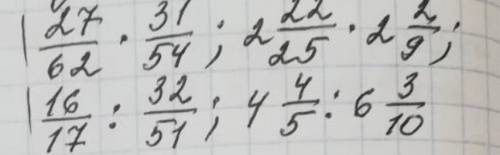 27/62 · 31/54 ; 2 22/25 · 2 2/9 ;
16/17 : 32/51 ; 4 4/5 : 6 3/10